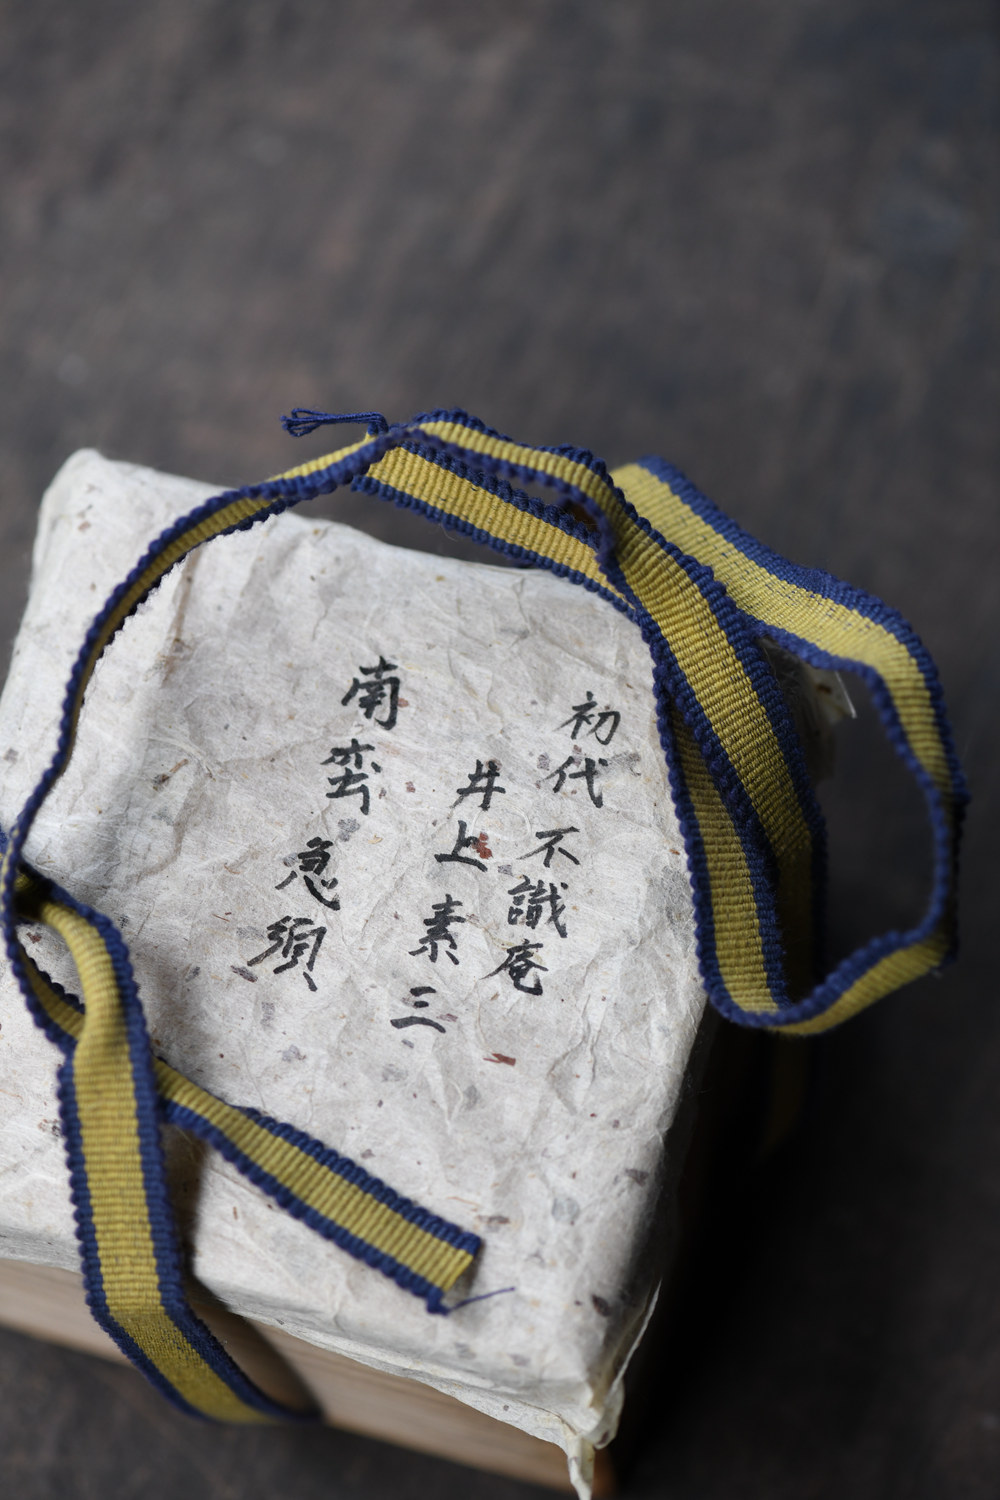 初代 不識庵
井上素三
南蛮 急須